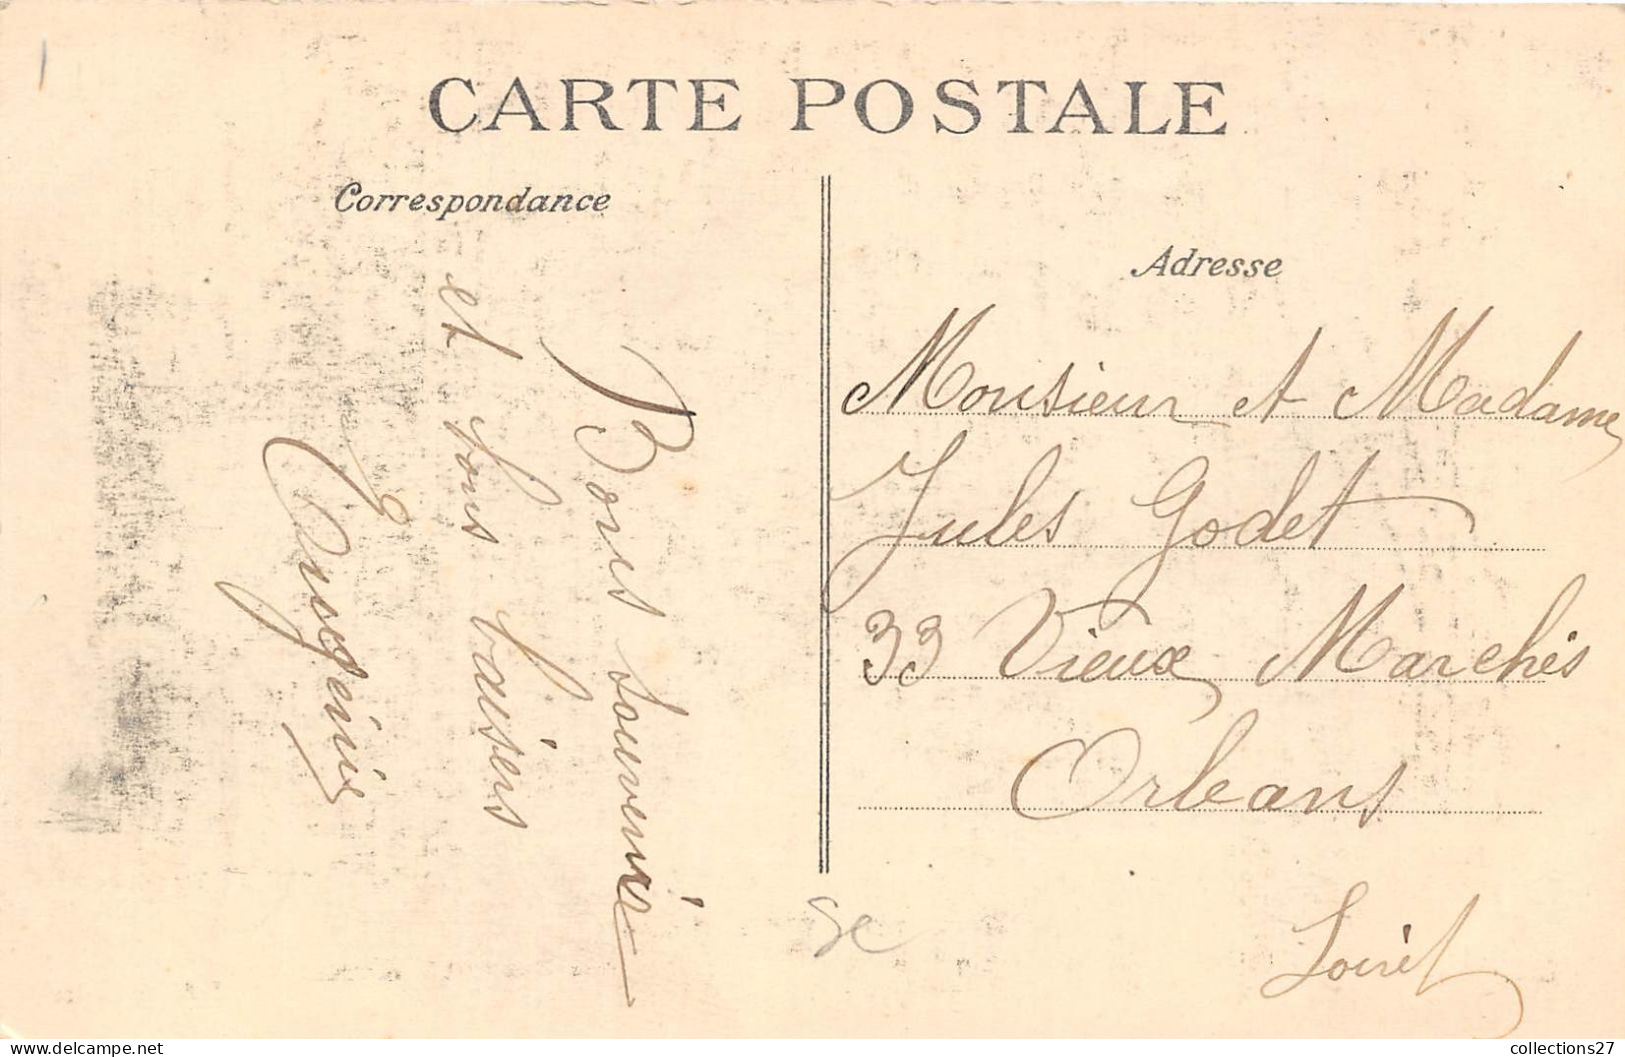 CARTE POSTALE
Correspondance
Bons souvenirs
et bons baisers
Eugénie
Adresse
Monsieur et Madame
Jules Godet
33 Vieux Marchés
Orleans
Loiret
collections27